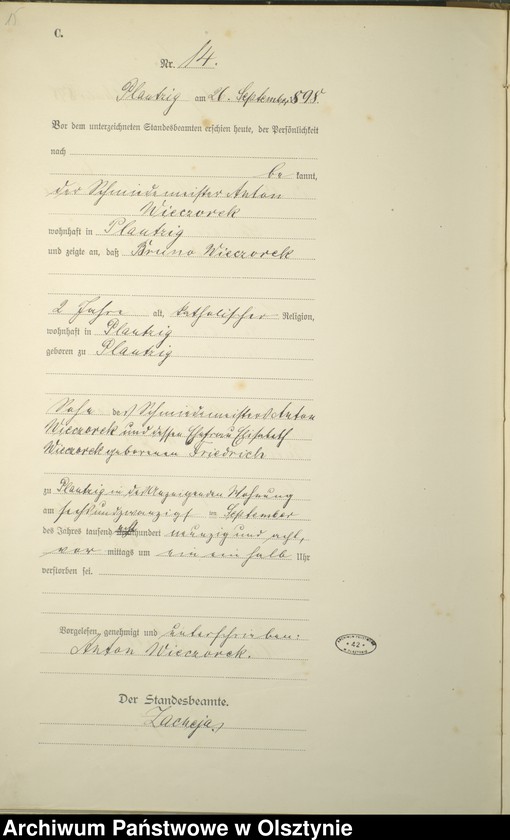 15
C.
Nr. 14.
Plautzig am 26. September 1898.
Vor dem unterzeichneten Standesbeamten erschien heute, der Persönlichkeit
nach
be kannt,
der Schmiedemeister Anton
Wieczorek
wohnhaft in Plautzig
und zeigte an, daß Bruno Wieczorek
2 Jahre alt, katholischer Religion,
wohnhaft in Plautzig
geboren zu Plautzig
Sohn des Schmiedemeisters Anton
Wieczorek und dessen Ehefrau Elisabeth
Wieczorek geborenen Friedrich
zu Plautzig in des Anzeigenden Wohnung
am sechsundzwanzigst = September
des Jahres tausend achthundert neunzig und acht,
vor mittags um ein ein halb Uhr
verstorben sei.
Vorgelesen, genehmigt und unterschrieben:
Anton Wieczorek.
Der Standesbeamte.
Zacheja
* 42 *
Archiwum Państwowe w Olsztynie